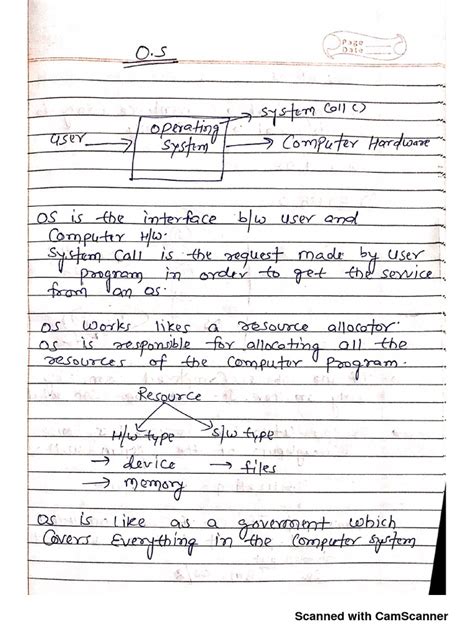 Page
Date
O.S
System Call ()
User
Operating
System
Computer Hardware
OS is the interface b/w user and
Computer H/W.
System Call is the request made by user
program in order to get the service
from an os.
OS works likes a resource allocator.
OS is responsible for allocating all the
resources of the computer program.
Resource
H/w type
S/w type
→ device
→ files
→ memory
OS is like as a goverment which
Covers Everything in the computer system
Scanned with CamScanner